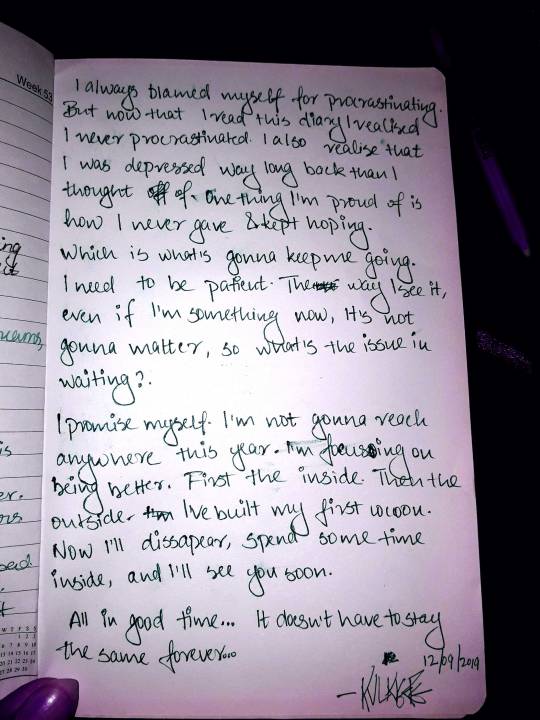 Week 53
I always blamed myself for procrastinating.
But now that I read this diary I realised
I never procrastinated. I also realise that
I was depressed way long back than I
thought of. One thing I'm proud of is
how I never gave & kept hoping.
Which is what's gonna keep me going.
I need to be patient. The way I see it,
even if I'm something now, It's not
gonna matter, so what's the issue in
waiting?.
I promise myself. I'm not gonna reach
anywhere this year. I'm focusing on
being better. First the inside. Then the
outside. I've built my first cocoon.
Now I'll dissapear, spend some time
inside, and I'll see you soon.
All in good time... It doesn't have to stay
the same forever...
12/09/2019